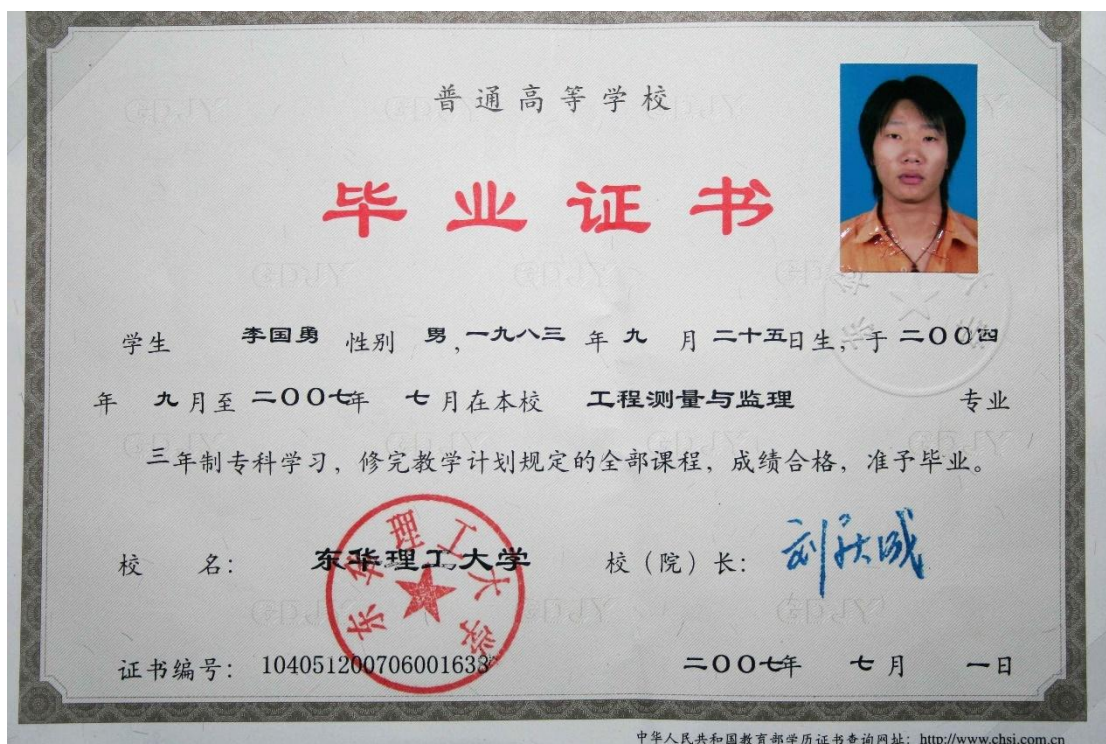 普通高等学校
毕业证书
学生 李国勇 性别 男,一九八三 年 九 月 二十五日生,于 二〇〇四
年 九月至 二〇〇七年 七月在本校 工程测量与监理 专业
三年制专科学习，修完教学计划规定的全部课程，成绩合格，准予毕业。
校 名： 东华理工大学 校（院）长：
东华理工大学
证书编号： 104051200706001633 二〇〇七年 七月 一日
中华人民共和国教育部学历证书查询网址：http://www.chsi.com.cn